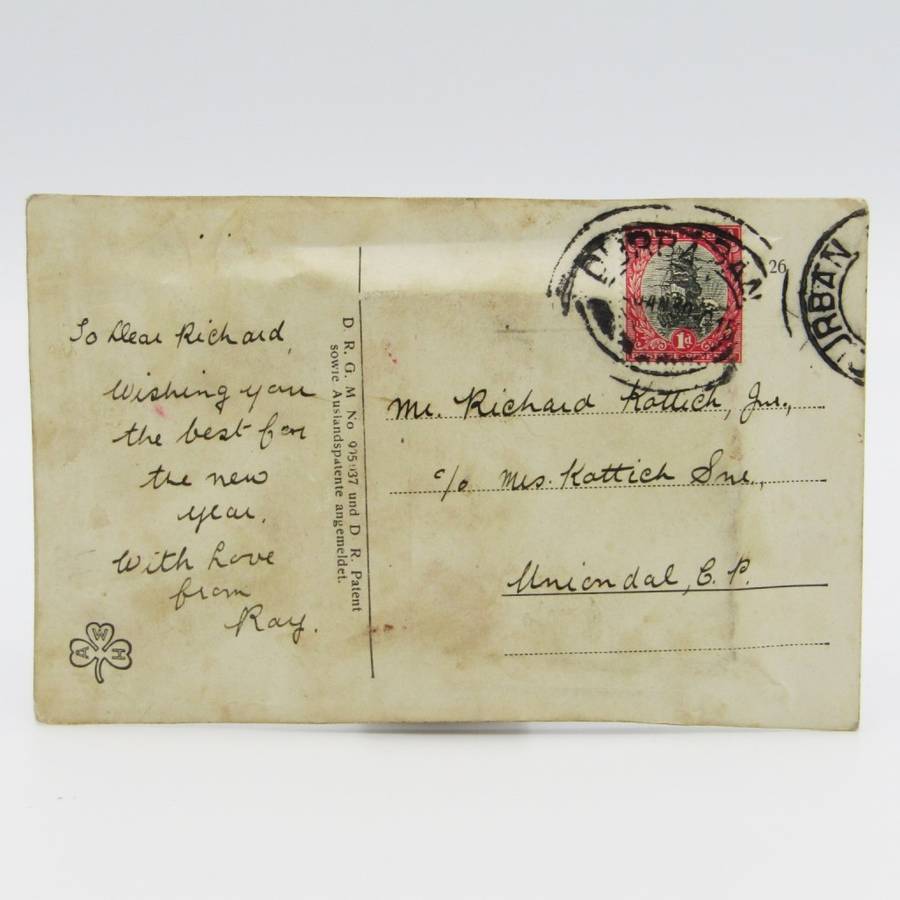 To Dear Richard,
Wishing you
the best for
the new
year.
With Love
from
Ray.
A W H
D. R. G. M No und D R. Patent
sowie Auslandspatente angemeldet.
DURBAN
JAN 30
1d
26
DURBAN
Mr. Richard Kottich, Jnr.,
c/o Mrs. Kottich Snr.,
Uniondal, C. P.